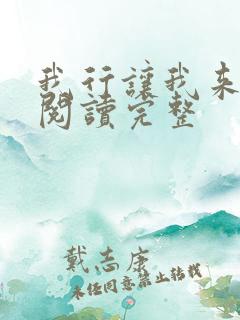 我行讓我来
閱讀完整
戴志康
未经同意禁止转载